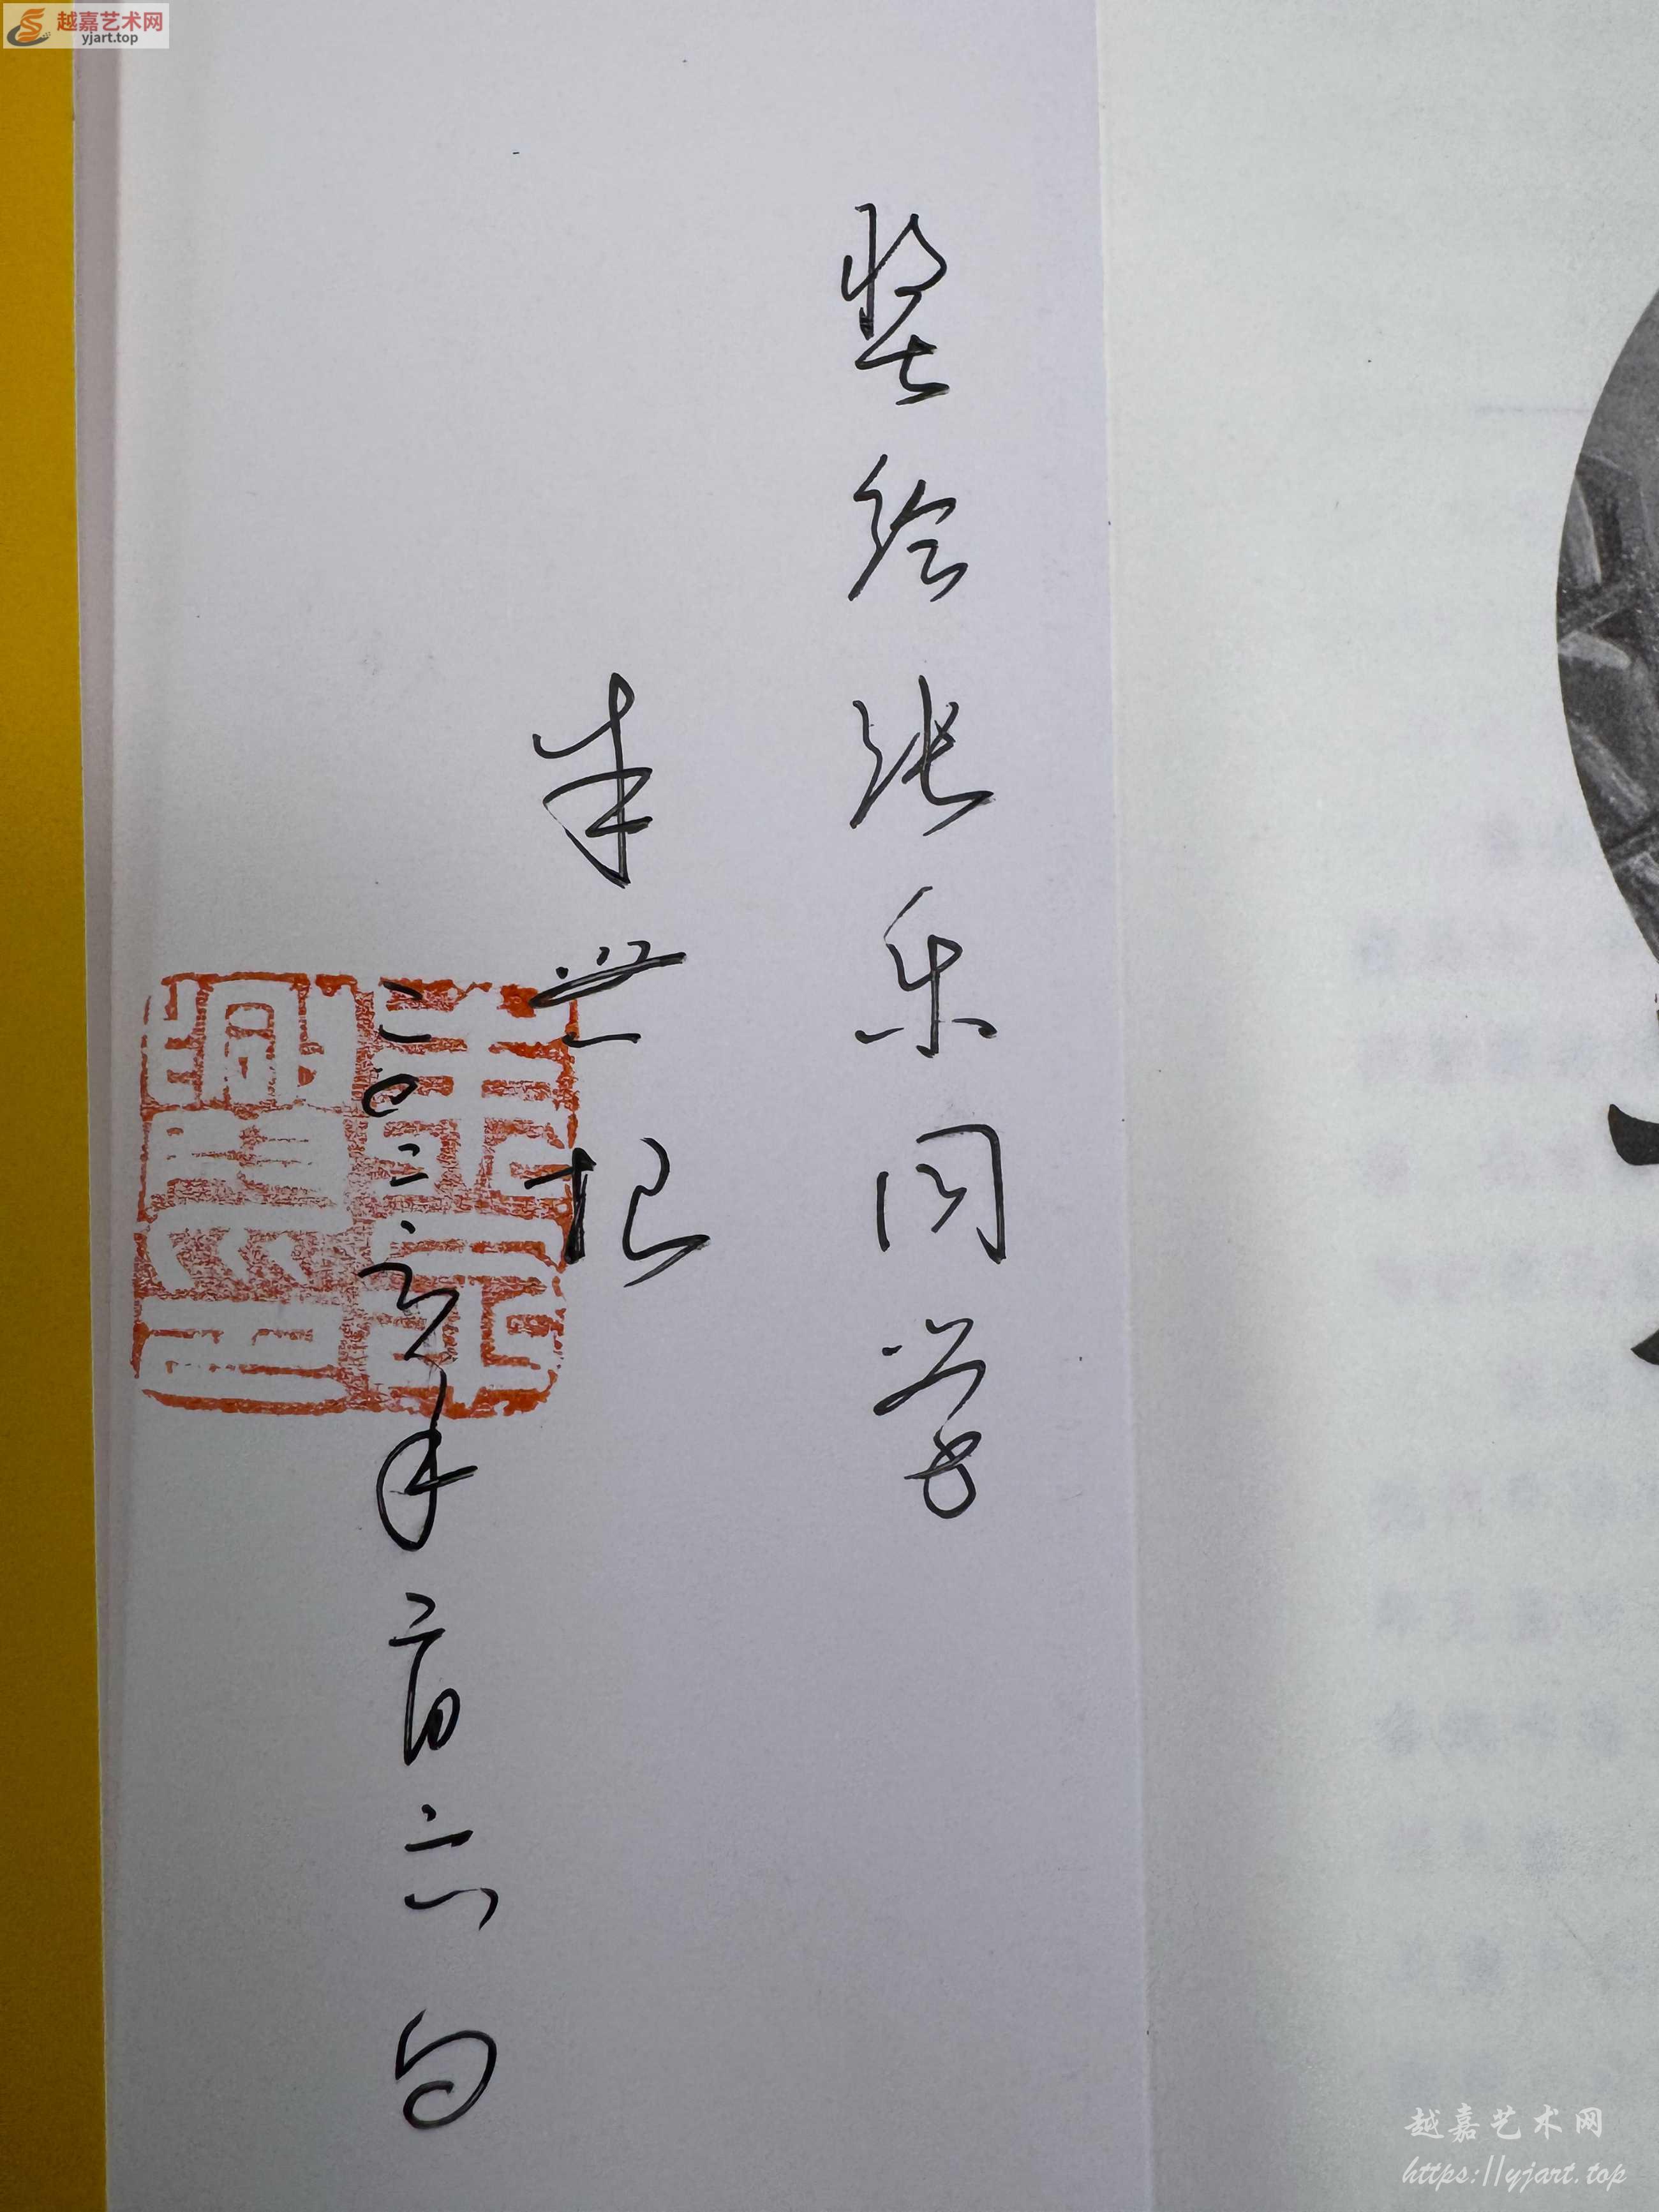 越嘉艺术网
yjart.top
奖给张乐同学
世根
二〇二三年 月六日
越嘉艺术网
https://yjart.top